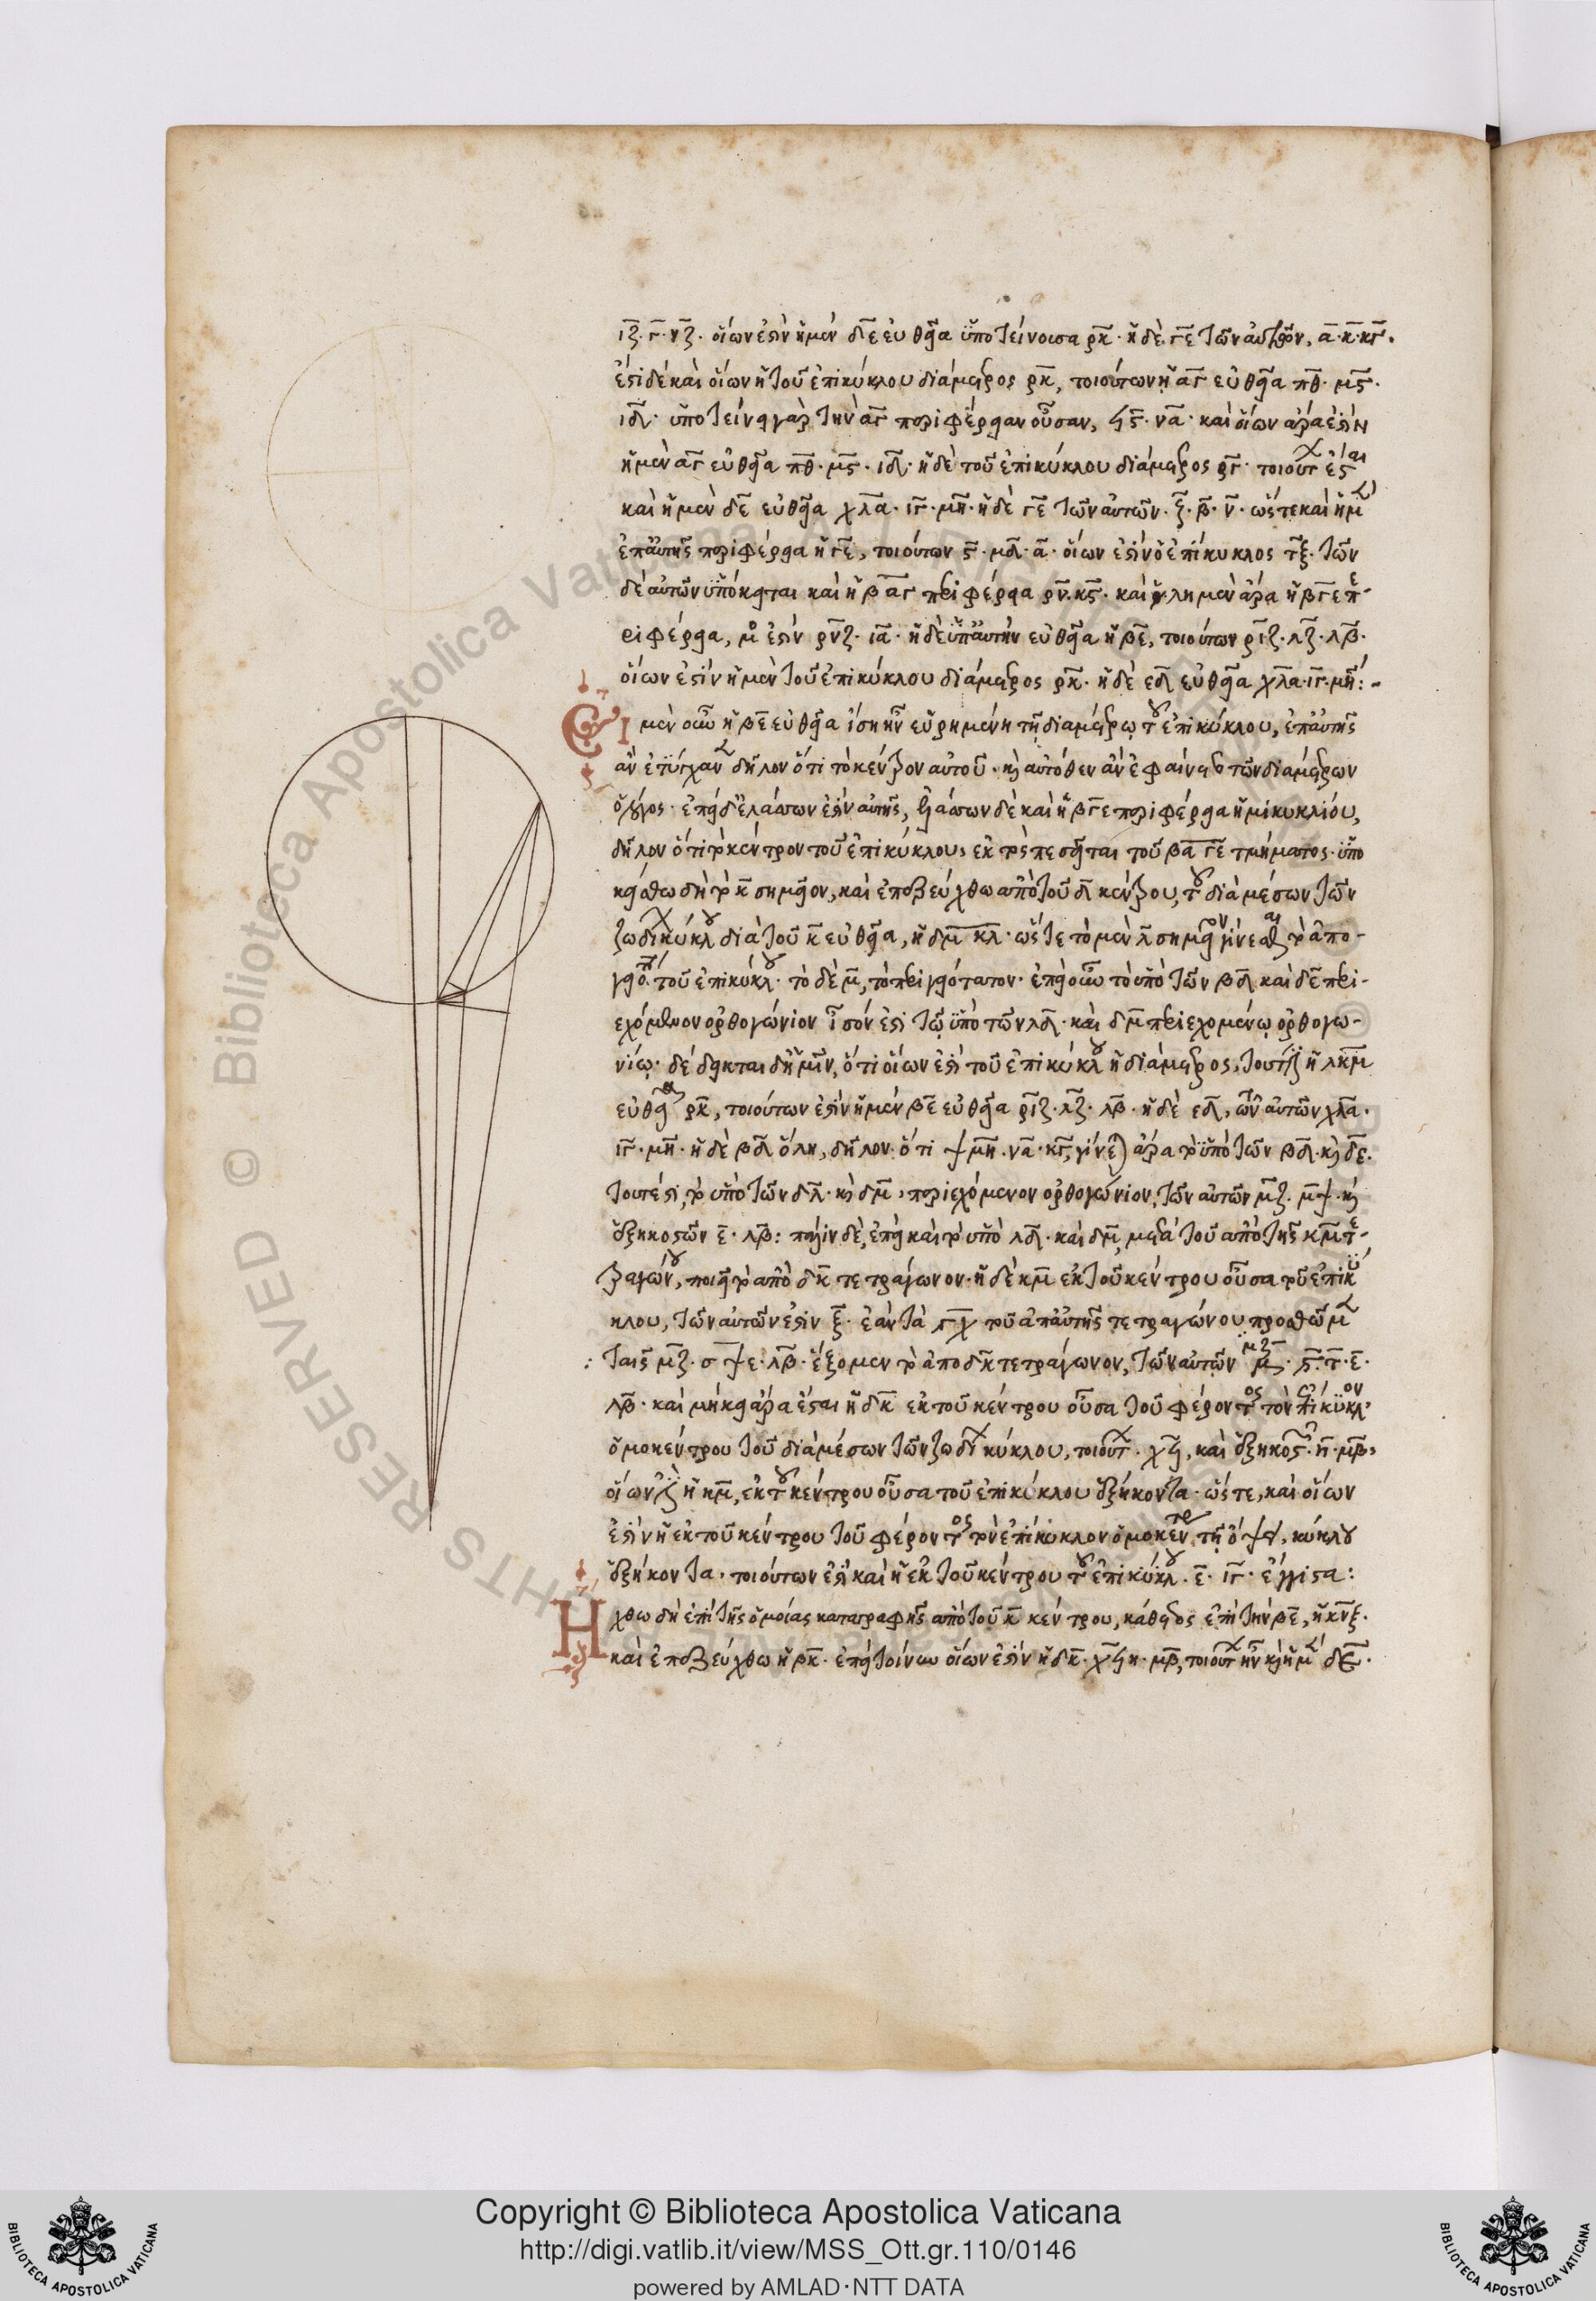 ιζ. γ. νζ. οἵων ἐστὶν ἡ μὲν δε εὐθεῖα ὑποτείνουσα ρκ. ἡ δὲ γε τῶν αὐτῶν, α. κ. κγ.
ἔστι δὲ καὶ οἵων ἡ τοῦ ἐπικύκλου διάμετρος ρκ, τοιούτων ἡ αγ εὐθεῖα πθ. μς.
ιδ. ὑποτείνει γὰρ τὴν αγ περιφέρειαν οὖσαν, ϟς. να. καὶ οἵων ἄρα ἐστὶν
ἡ μὲν αγ εὐθεῖα πθ. μς. ιδ. ἡ δὲ τοῦ ἐπικύκλου διάμετρος ρκ. τοιούτ ἔσται
καὶ ἡ μὲν δε εὐθεῖα χλα. ιγ. μη. ἡ δὲ γε τῶν αὐτῶν. ζ. β. ν. ὥστε καὶ ἡ μ
ἐπ αὐτῆς περιφέρεια ἡ γε, τοιούτων ς. μδ. α. οἵων ἐστὶν ὁ ἐπίκυκλος τξ. τῶν
δὲ αὐτῶν ὑπόκειται καὶ ἡ βαγ περιφέρεια ρν. κς. καὶ ὅλη μὲν ἄρα ἡ βγε π-
εριφέρεια, μο ἐστὶν ρνζ. ια. ἡ δὲ ὑπ αὐτὴν εὐθεῖα ἡ βε, τοιούτων ριζ. λζ. λβ.
οἵων ἐστὶν ἡ μὲν τοῦ ἐπικύκλου διάμετρος ρκ. ἡ δὲ εδ εὐθεῖα χλα. ιγ. μη:-
Εἰ μὲν οὖν ἡ βε εὐθεῖα ἴση ἦν εὑρημένη τῇ διαμέτρῳ τ ἐπικύκλου, ἐπ αὐτῆς
ἂν ἐτύγχαν δῆλον ὅτι τὸ κέντρον αὐτοῦ. κ αὐτόθεν ἂν ἐφαίνετο τῶν διαμέτρων
ὁ λόγος. ἐπεὶ δ ἐλάσσων ἐστὶν αὐτῆς, ἐλάσσων δὲ καὶ ἡ βγε περιφέρεια ἡμικυκλίου,
δῆλον ὅτι τὸ κέντρον τοῦ ἐπικύκλου, ἐκτὸς πεσεῖται τοῦ βα γε τμήματος. ὑπο
κείσθω δὴ τὸ κ σημεῖον, καὶ ἐπεζεύχθω ἀπὸ τοῦ δ κέντρου, τ διὰ μέσων τῶν
ζωδι κύκλ διὰ τοῦ κ εὐθεῖα, ἡ δμ κλ. ὥστε τὸ μὲν λ σημεῖον γίνεσθαι τὸ ἀπο-
γειο. τοῦ ἐπικύκλ. τὸ δὲ μ, τὸ περιγειότατον. ἐπεὶ οὖν τὸ ὑπὸ τῶν βδ καὶ δε περι-
εχόμενον ὀρθογώνιον ἴσον ἐστὶ τῷ ὑπὸ τῶν λδ. καὶ δμ περιεχομένῳ ὀρθογω-
νίῳ. δέδεικται δ ἡμῖν, ὅτι οἵων ἐστὶ τοῦ ἐπικύκλ ἡ διάμετρος, τουτέστιν ἡ λκμ
εὐθεῖα ρκ, τοιούτων ἐστὶν ἡ μὲν βε εὐθεῖα ριζ. λζ. λβ. ἡ δὲ εδ, τῶν αὐτῶν χλα.
ιγ. μη. ἡ δὲ βδ ὅλη, δῆλον. ὅτι ψμη. να. κγ, γίνε ἄρα τὸ ὑπὸ τῶν βδ. κ δε.
τουτέστι, τὸ ὑπὸ τῶν δλ. κ δμ, περιεχόμενον ὀρθογώνιον, τῶν αὐτῶν μζ. μ. κ
ἑξηκοστῶν ε. λβ: πάλιν δὲ, ἐπεὶ καὶ τὸ ὑπὸ λδ. καὶ δμ, μετὰ τοῦ ἀπὸ τῆς κμ τ-
ραγών, ποιεῖ τὸ ἀπὸ δκ τετράγωνον. ἡ δὲ κμ ἐκ τοῦ κέντρου οὖσα τοῦ ἐπικ
κλου, τῶν αὐτῶν ἐστιν ξ. ἐὰν τὰ γχ τοῦ ἀπ αὐτῆς τετραγώνου προσθῶμ
ταῖς μζ. σ ε. λβ. ἕξομεν τὸ ἀπὸ δκ τετράγωνον, τῶν αὐτῶν μζ ϛ. τ. ε.
λβ. καὶ μήκει ἄρα ἔσται ἡ δκ ἐκ τοῦ κέντρου οὖσα τοῦ φέροντος τὸν ἐπίκυκλον
ὁμοκέντρου τοῦ διὰ μέσων τῶν ζωδι κύκλου, τοιούτ. χϟ, καὶ ἑξηκοστ. η. μβ,
οἵων ἡ κμ, ἐκ τ κέντρου οὖσα τοῦ ἐπικύκλου ἑξήκοντα. ὥστε, καὶ οἵων
ἐστὶν ἡ ἐκ τοῦ κέντρου τοῦ φέροντος τὸν ἐπίκυκλον ὁμοκεν τῇ ὄψει, κύκλου
ἑξήκοντα. τοιούτων ἐστὶ καὶ ἡ ἐκ τοῦ κέντρου τ ἐπικύκλ. ε. ιγ. ἔγγιστα:
Ηχθω δὴ ἐπὶ τῆς ὁμοίας καταγραφῆς ἀπὸ τοῦ κ κέντρου, κάθετος ἐπὶ τὴν βε, ἡ κνξ.
καὶ ἐπεζεύχθω ἡ βκ. ἐπεὶ τοίνυν οἵων ἐστὶν ἡ δκ. χϟ η. μβ, τοιούτ ἦν κ ἡ μ δε.
Copyright © Biblioteca Apostolica Vaticana
http://digi.vatlib.it/view/MSS_Ott.gr.110/0146
powered by AMLAD·NTT DATA
BIBLIOTECA APOSTOLICA VATICANA
BIBLIOTECA APOSTOLICA VATICANA